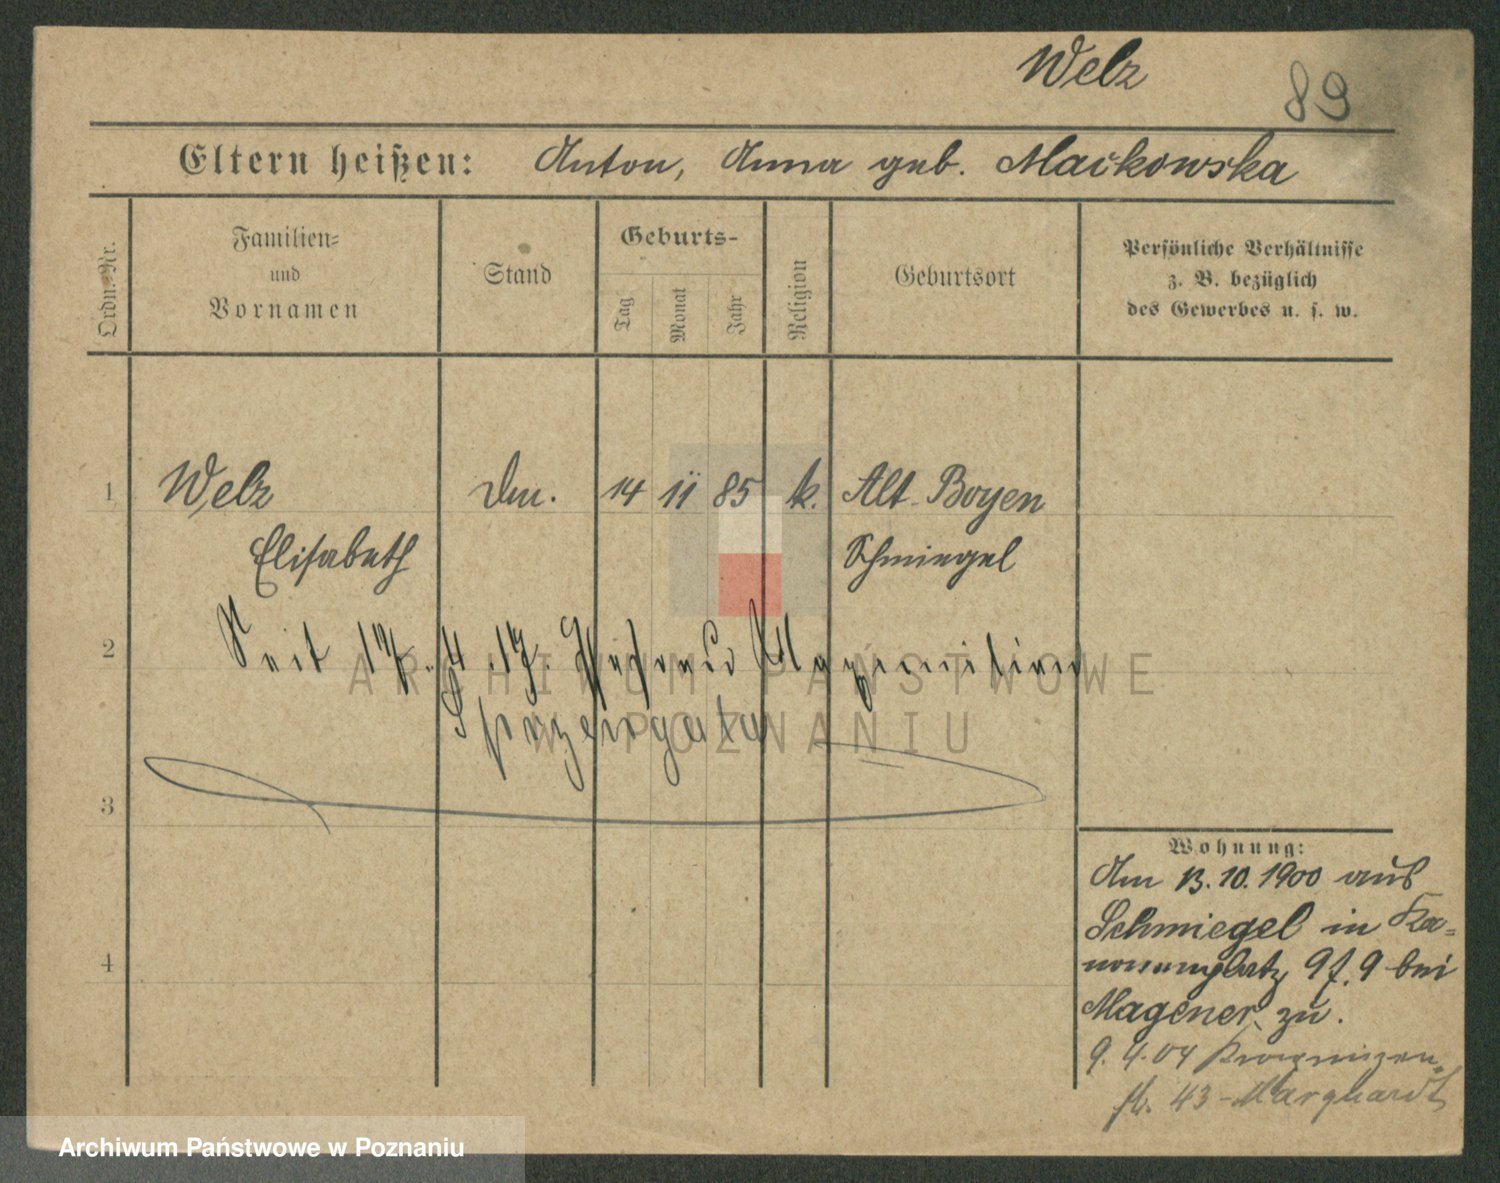 Welz
89
Eltern heißen: Anton, Anna geb. Maćkowska
Ordn.-Nr.
Familien-
und
Vornamen
Stand
Geburts-
Tag
Monat
Jahr
Religion
Geburtsort
Persönliche Verhältnisse
z. B. bezüglich
des Gewerbes u. s. w.
1 Welz 14 11 85 k. Alt-Boyen
Elisabeth Schmiegel
2 Seit 17. 4. 17.
3
4
Wohnung:
Am 13. 10. 1900 aus
Schmiegel in Ka-
nonenplatz 9 f. 9 bei
Magener zu.
9. 4. 04
43 - Marquardt
ARCHIWUM PAŃSTWOWE
W POZNANIU
Archiwum Państwowe w Poznaniu